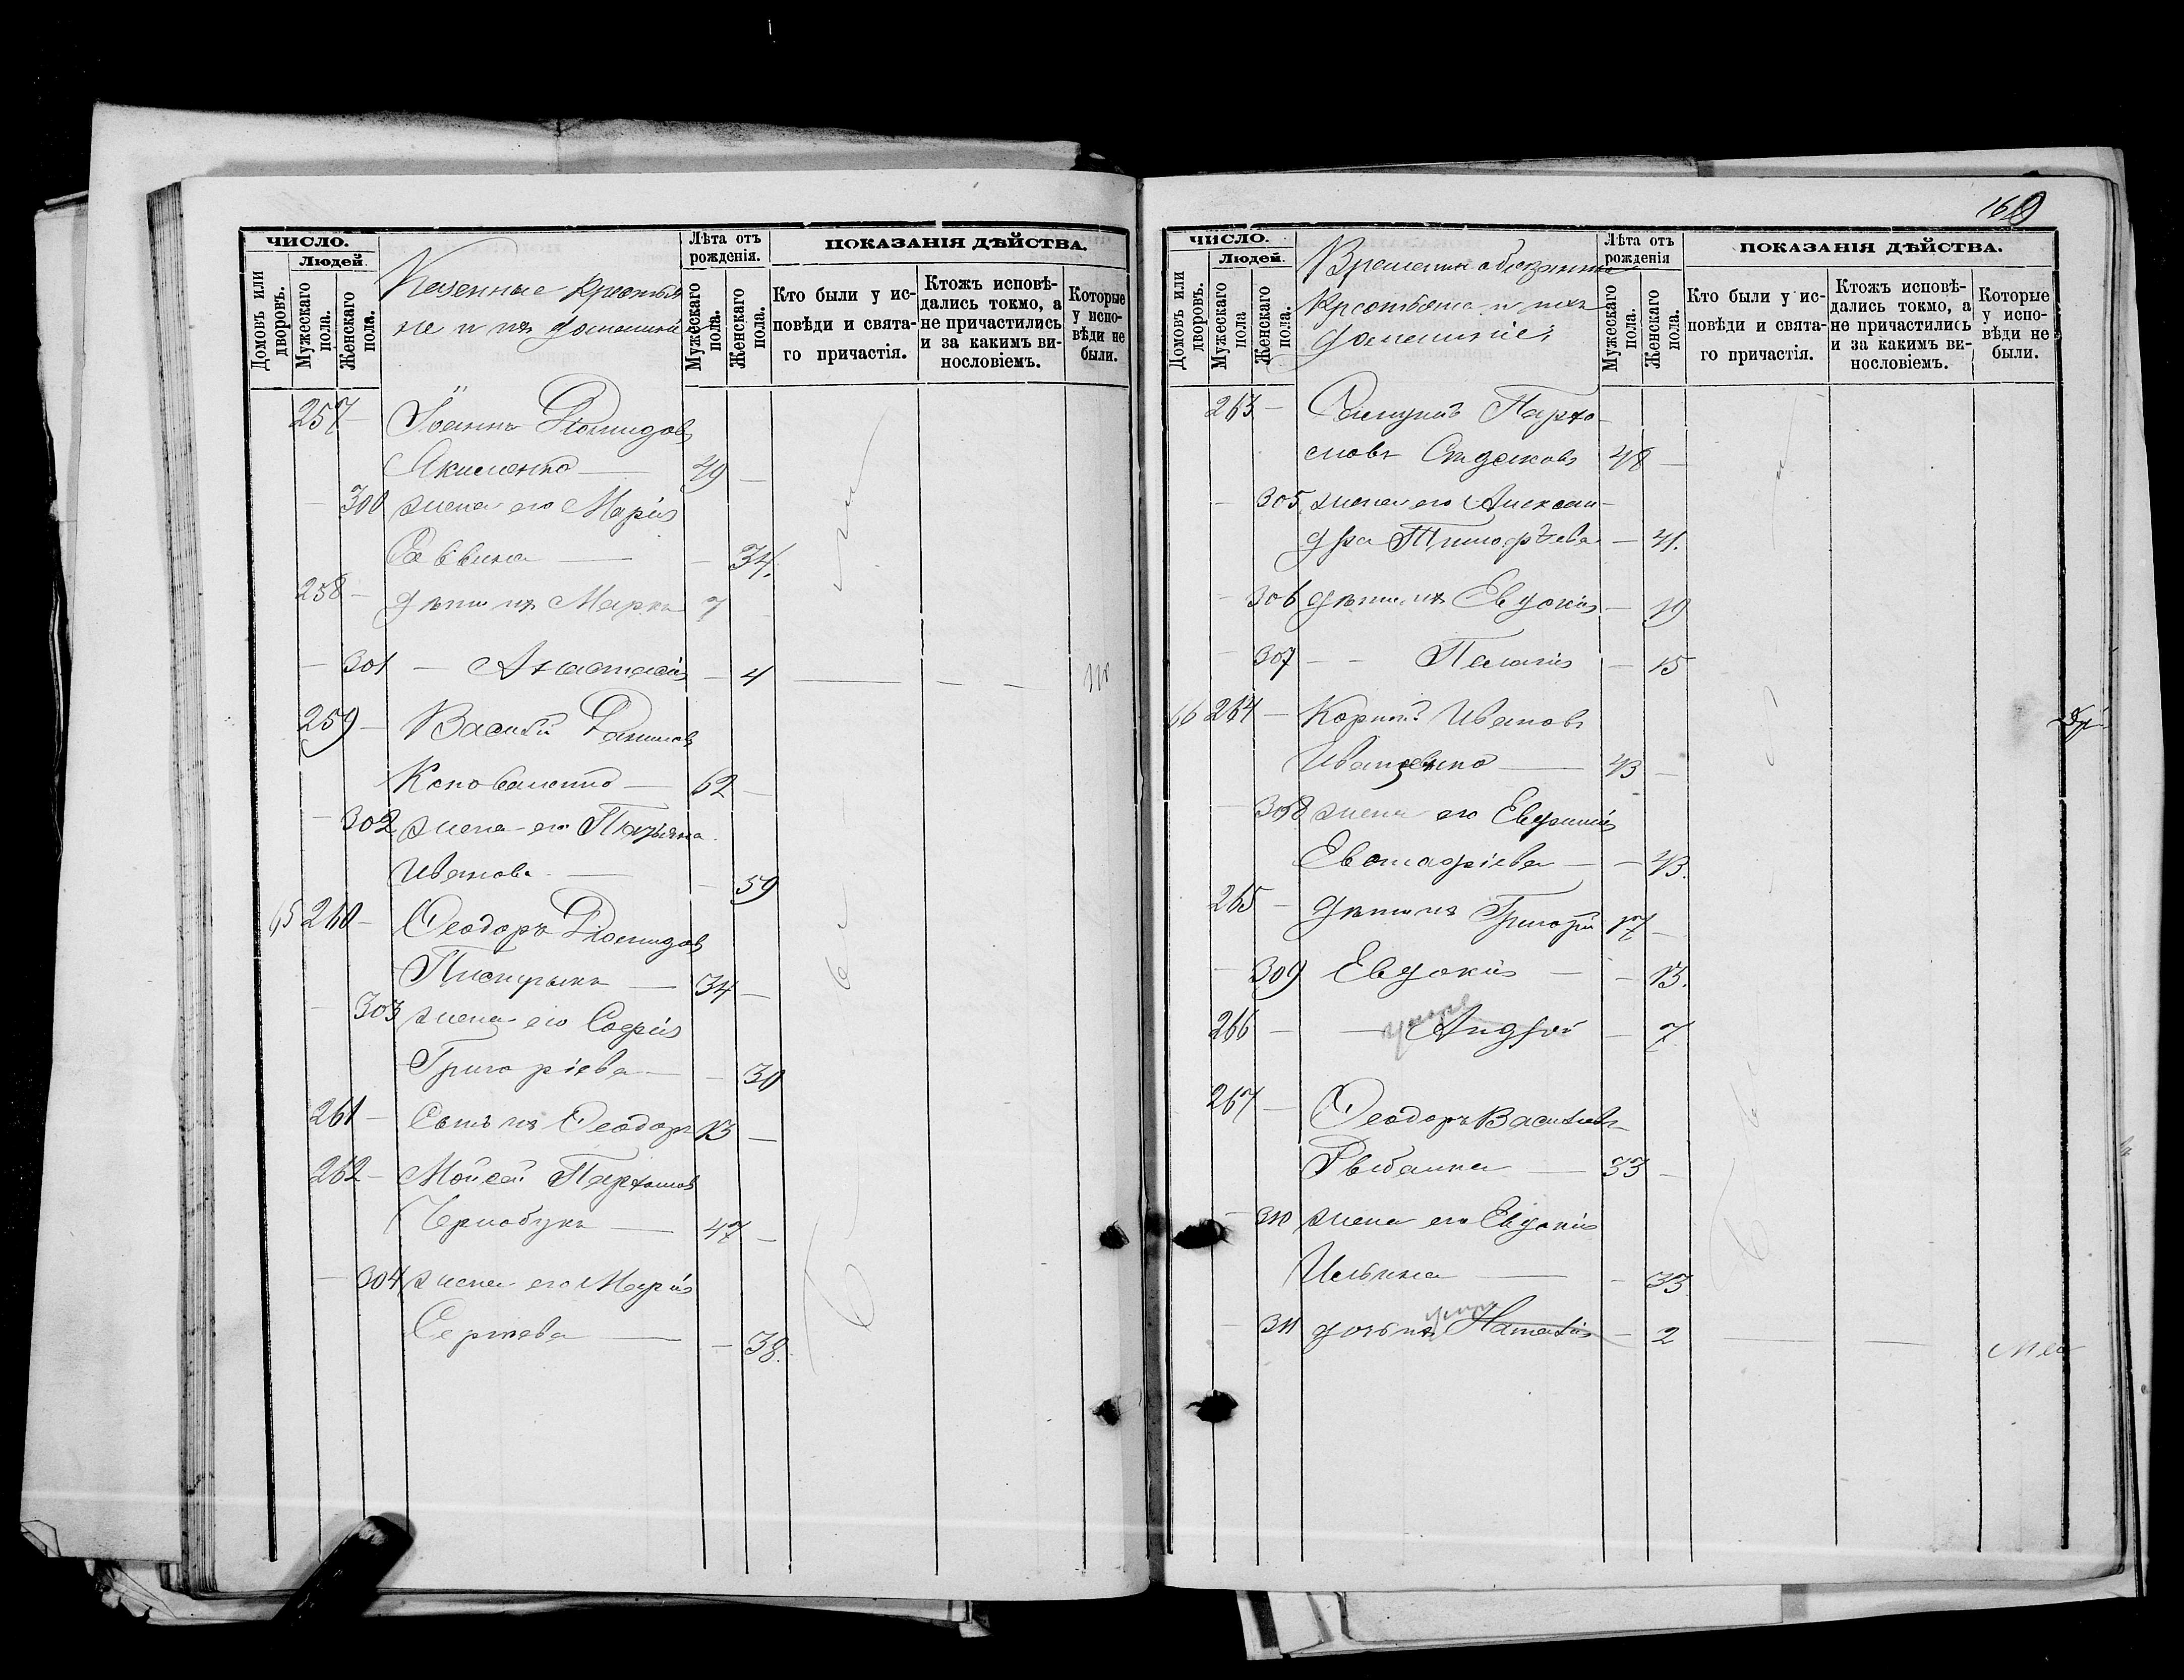 ЧИСЛО.
Людей.
Домовъ или дворовъ.
Мужескаго пола.
Женскаго пола.
Казенные крестья-
не и ихъ домашніе
Лѣта отъ рожденія.
Мужескаго пола.
Женскаго пола.
ПОКАЗАНІЯ ДѢЙСТВА.
Кто были у ис-
повѣди и свята-
го причастія.
Ктожъ исповѣ-
дались токмо, а
не причастились
и за какимъ ви-
нословіемъ.
Которые
у испо-
вѣди не
были.
257 — Іоаннъ Діомидовъ
Якименко — 49 —
— 300 жена его Марія
Саввина — — 34.
258 — дѣти ихъ Марко 7
— 301 — Анастасія — 4 — — —
259 — Василій Даниловъ
Коноваленко — 62 —
— 302 жена его Татьяна
Иванова — — 59
65 260 — Ѳеодоръ Діомидовъ
34 —
— 303 жена его Софія
Григоріева — — 30
261 — Сынъ ихъ Ѳеодоръ 13 —
262 — Моисей Пархомовъ
Чернобукъ — 47 —
— 304 жена его Марія
Сергіева — — 38.
160
ЧИСЛО.
Людей.
Домовъ или дворовъ.
Мужескаго пола
Женскаго пола.
Временно обязанные
крестьяне и ихъ
домашніе:
Лѣта отъ рожденія
Мужескаго пола.
Женскаго пола.
ПОКАЗАНІЯ ДѢЙСТВА.
Кто были у ис-
повѣди и свята-
го причастія.
Ктожъ исповѣ-
дались токмо, а
не причастились
и за какимъ ви-
нословіемъ.
Которые
у испо-
вѣди не
были.
263 — Самуилъ Пархо-
мовъ 48 —
— 305 жена его Алексан-
дра Тимофѣева — 41.
— 306 дѣти ихъ Евдокія — 19
— 307 — — Пелагія — 15
66 264 — Корнилій Ивановъ
Иващенко — 43 —
— 308 жена его Евфимія
Евстафіева — — 43.
265 — дѣти ихъ Григорій 17 —
— 309 Евдокія — — 13.
умеръ
266 — — Андрей — 7
267 — Ѳеодоръ Васильевъ
Рыбалка — 33 —
— 310 жена его Евдокія
Ильина — — 33
умер
— 311 дочь ихъ Наталія — 2 — —